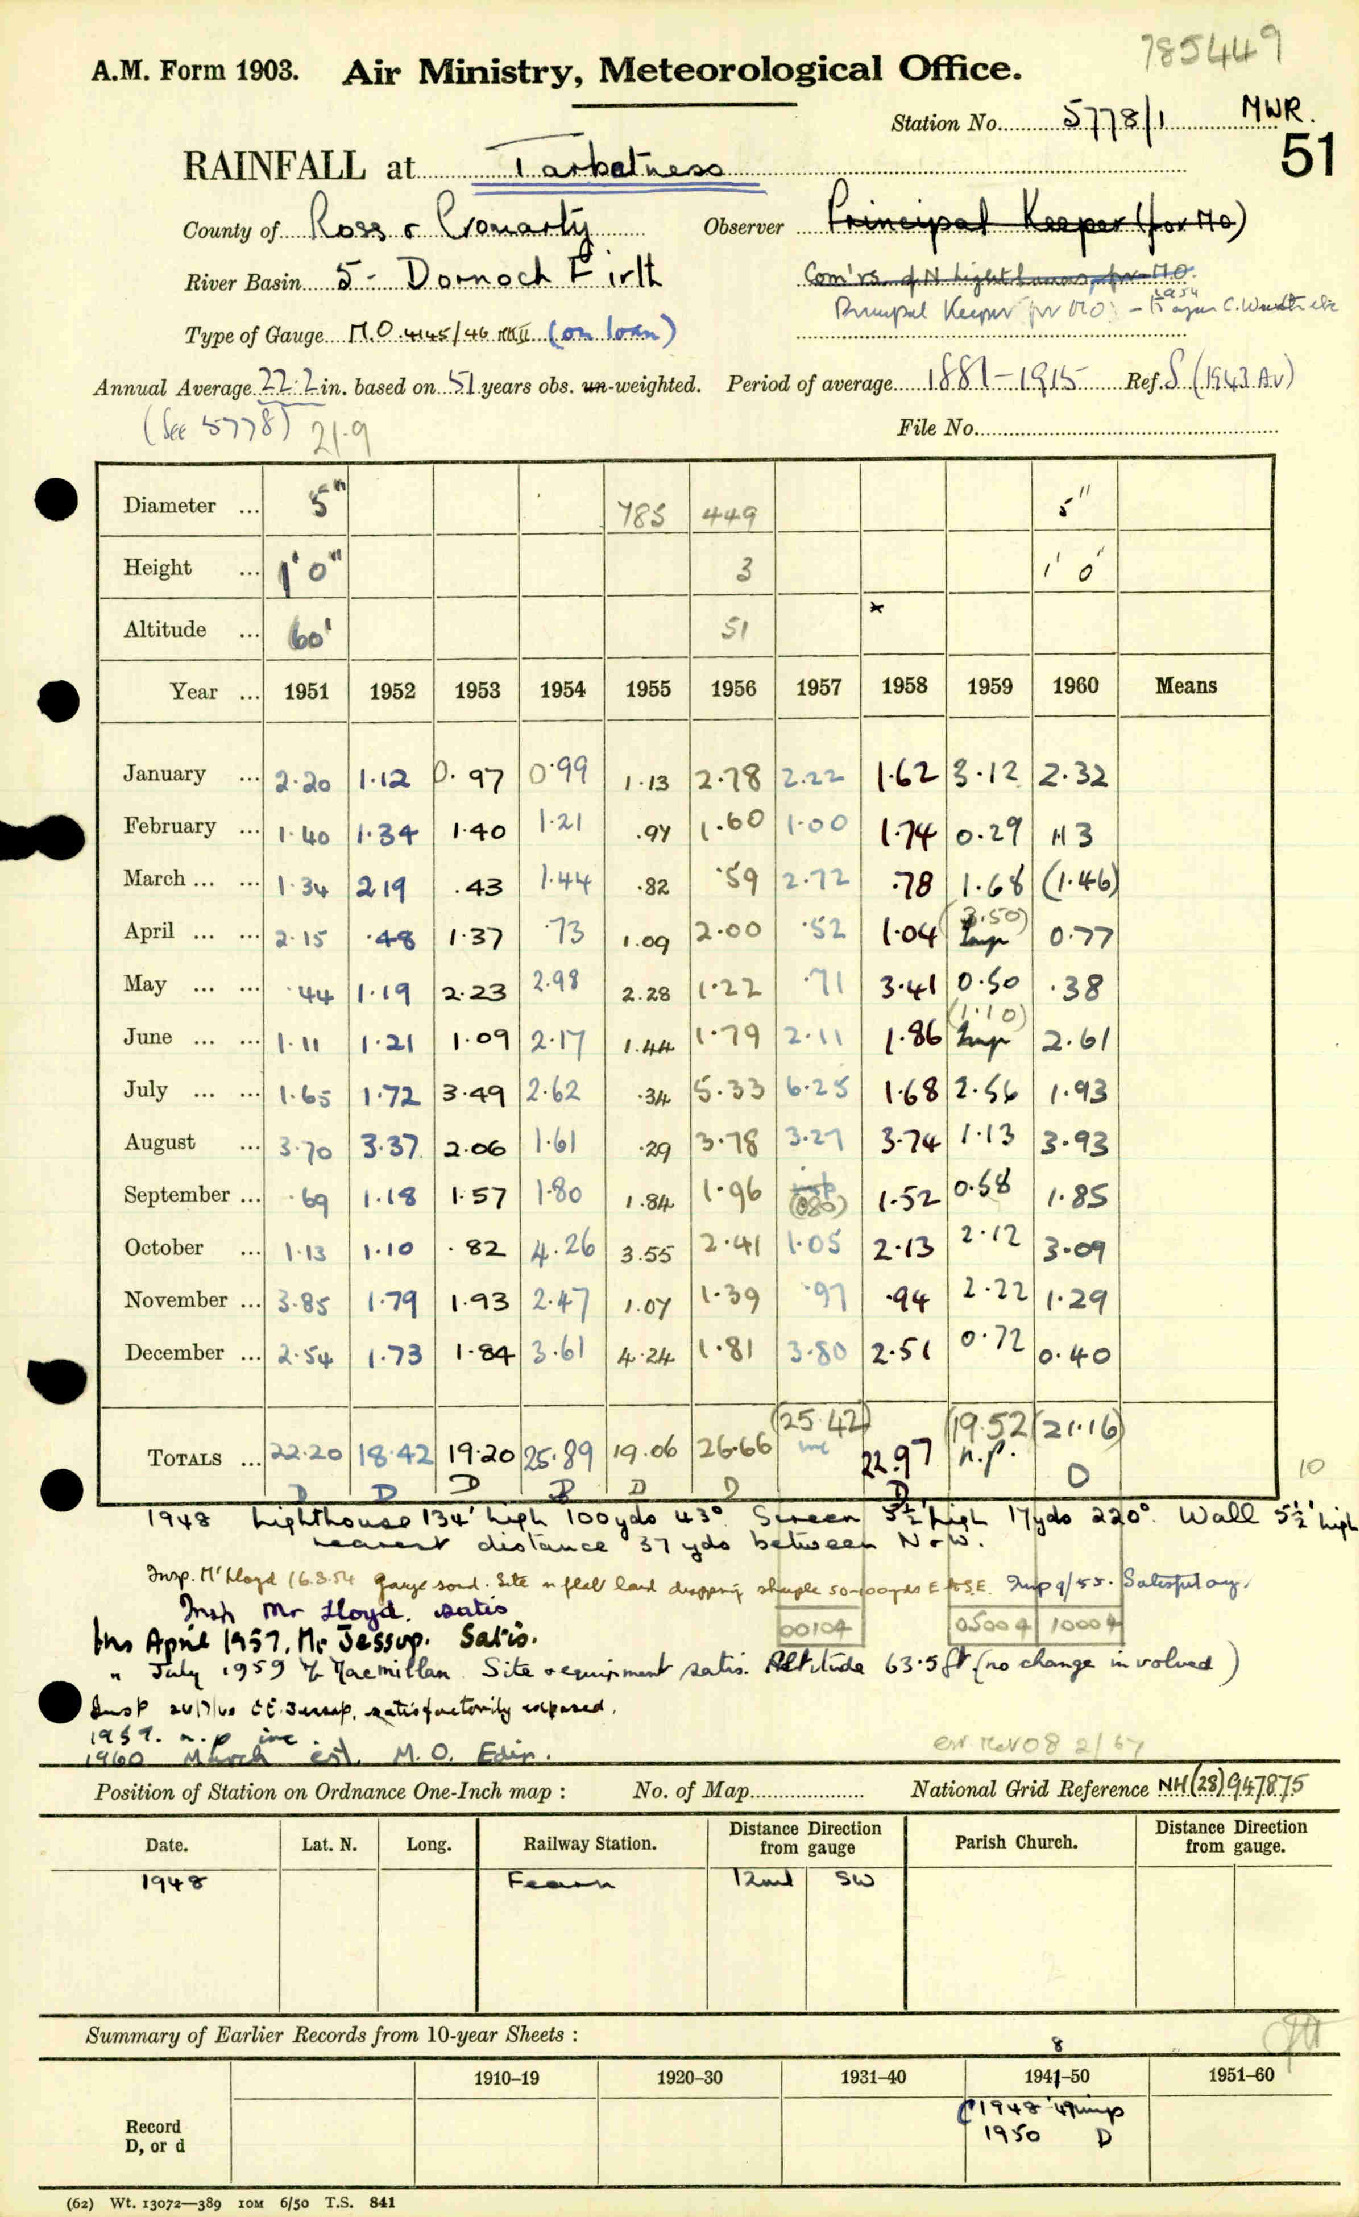 785449
A.M. Form 1903. Air Ministry, Meteorological Office.
Station No. 5778/1 MWR.
51
RAINFALL at Tarbetness
County of Ross & Cromarty Observer Principal Keeper (for MO)
River Basin 5 - Dornoch Firth Com'rs of N Lighthouses, for M.O.
Principal Keeper for MO
Type of Gauge M.O. 4145/46 MKII (on loan)
Annual Average 22.2 in. based on 51 years obs. un-weighted. Period of average 1881-1915 Ref. S (1943 Av)
(See 5778) 21.9 File No.
Diameter ... 5" 785 449 5"
Height ... 1' 0" 3 1' 0"
Altitude ... 60' 51 *
Year ... 1951 1952 1953 1954 1955 1956 1957 1958 1959 1960 Means
January ... 2.20 1.12 0.97 0.99 1.13 2.78 2.22 1.62 3.12 2.32
February ... 1.40 1.34 1.40 1.21 .97 1.60 1.00 1.74 0.29 1.13
March ... ... 1.34 2.19 .43 1.44 .82 .59 2.72 .78 1.68 (1.46)
April ... ... 2.15 .48 1.37 .73 1.09 2.00 .52 1.04 (3.50) Imp 0.77
May ... ... .44 1.19 2.23 2.98 2.28 1.22 .71 3.41 0.50 .38
June ... ... 1.11 1.21 1.09 2.17 1.44 1.79 2.11 1.86 (1.10) Imp 2.61
July ... ... 1.65 1.72 3.49 2.62 .34 5.33 6.25 1.68 2.56 1.93
August ... 3.70 3.37 2.06 1.61 .29 3.78 3.27 3.74 1.13 3.93
September ... .69 1.18 1.57 1.80 1.84 1.96 imp (0.80) 1.52 0.58 1.85
October ... 1.13 1.10 .82 4.26 3.55 2.41 1.05 2.13 2.12 3.09
November ... 3.85 1.79 1.93 2.47 1.07 1.39 .97 .94 2.22 1.29
December ... 2.54 1.73 1.84 3.61 4.24 1.81 3.80 2.51 0.72 0.40
(25.42) (19.52) (21.16)
TOTALS ... 22.20 18.42 19.20 25.89 19.06 26.66 inc 22.97 n.p.
D D D D D D D D
10
1948 Lighthouse 134' high 100yds 43°. Screen 5½' high 17yds 220°. Wall 5½' high
nearest distance 37 yds between N & W.
Insp. Mr Lloyd 16.3.54 gauge sound. Site on flat land dropping sharply 50-100yds E & SE. Insp 9/55. Satisfactory.
Insp Mr Lloyd. satis
Ins April 1957, Mr Jessup. Satis.
00104 05004 10004
" July 1959 Macmillan. Site & equipment satis. Altitude 63.5 ft. (no change involved)
Insp 26/7/60 C.E. Jessup, satisfactorily exposed.
1959. n.p inc.
1960 March est. M.O. Edin.
Position of Station on Ordnance One-Inch map : No. of Map National Grid Reference NH(28)947875
Date. Lat. N. Long. Railway Station. Distance Direction from gauge Parish Church. Distance Direction from gauge.
1948 Fearn 12ml SW
Summary of Earlier Records from 10-year Sheets :
8
1910–19 1920–30 1931–40 1941–50 1951–60
Record
D, or d
1948 '49 imp
1950 D
(62) Wt. 13072—389 10M 6/50 T.S. 841